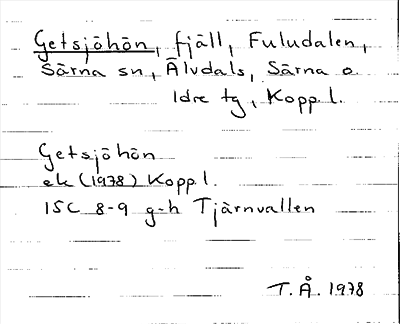 Getsjöhön, fjäll, Fuludalen,
Särna sn, Älvdals, Särna o
Idre tg, Koppl.
Getsjöhön
ek (1978) Koppl.
15C 8-9 g-h Tjärnvallen
T.Å. 1978